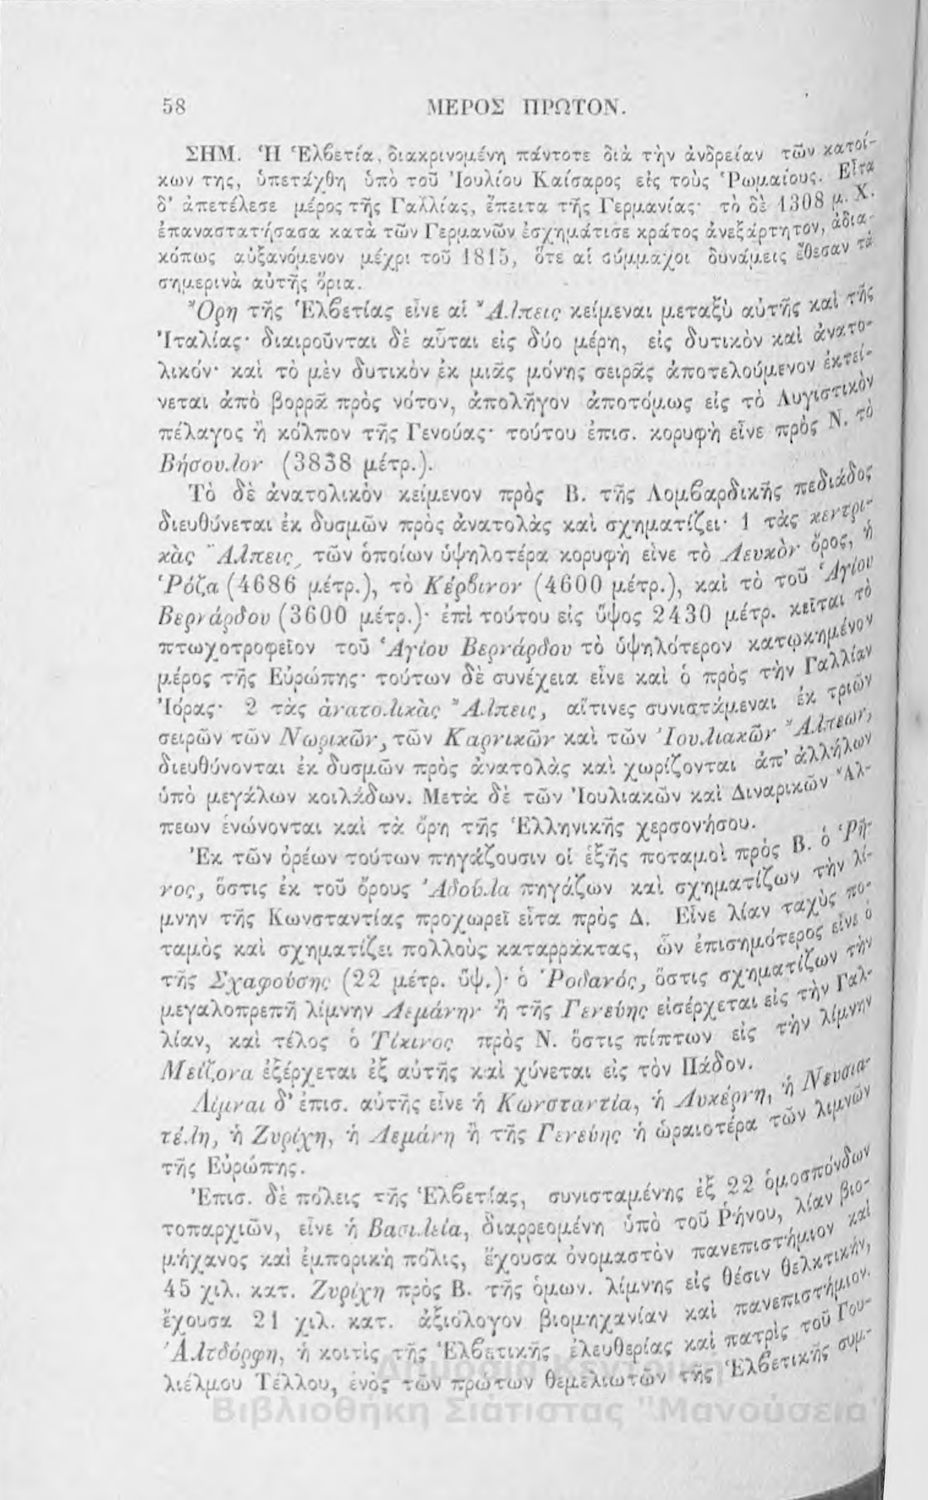 58 ΜΕΡΟΣ ΠΡΩΤΟΝ.
ΣΗΜ. Ἡ Ἑλβετία, διακρινομένη πάντοτε διὰ τὴν ἀνδρείαν τῶν κατοί-
κων της, ὑπετάχθη ὑπὸ τοῦ Ἰουλίου Καίσαρος εἰς τοὺς Ῥωμαίους. Εἶτα
δ' ἀπετέλεσε μέρος τῆς Γαλλίας, ἔπειτα τῆς Γερμανίας· τὸ δὲ 1308 μ. Χ.
ἐπαναστατήσασα κατὰ τῶν Γερμανῶν ἐσχημάτισε κράτος ἀνεξάρτητον, ἀδια-
κόπως αὐξανόμενον μέχρι τοῦ 1815, ὅτε αἱ σύμμαχοι δυνάμεις ἔθεσαν τὰ
σημερινὰ αὐτῆς ὅρια.
Ὄρη τῆς Ἑλβετίας εἶνε αἱ Ἄλπεις κείμεναι μεταξὺ αὐτῆς καὶ τῆς
Ἰταλίας· διαιροῦνται δὲ αὗται εἰς δύο μέρη, εἰς δυτικὸν καὶ ἀνατο-
λικόν· καὶ τὸ μὲν δυτικὸν ἐκ μιᾶς μόνης σειρᾶς ἀποτελούμενον ἐκτεί-
νεται ἀπὸ βορρᾶ πρὸς νότον, ἀπολῆγον ἀποτόμως εἰς τὸ Λυγιστικὸν
πέλαγος ἢ κόλπον τῆς Γενούας· τούτου ἐπισ. κορυφὴ εἶνε πρὸς Ν. τὸ
Βήσουλον (3838 μέτρ.).
Τὸ δὲ ἀνατολικὸν κείμενον πρὸς Β. τῆς Λομβαρδικῆς πεδιάδος
διευθύνεται ἐκ δυσμῶν πρὸς ἀνατολὰς καὶ σχηματίζει· 1 τὰς κεντρι-
κὰς Ἄλπεις, τῶν ὁποίων ὑψηλοτέρα κορυφὴ εἶνε τὸ Λευκὸν ὄρος, ἡ
Ῥόζα (4686 μέτρ.), τὸ Κέρβινον (4600 μέτρ.), καὶ τὸ τοῦ Ἁγίου
Βερνάρδου (3600 μέτρ.)· ἐπὶ τούτου εἰς ὕψος 2430 μέτρ. κεῖται τὸ
πτωχοτροφεῖον τοῦ Ἁγίου Βερνάρδου τὸ ὑψηλότερον κατῳκημένον
μέρος τῆς Εὐρώπης· τούτων δὲ συνέχεια εἶνε καὶ ὁ πρὸς τὴν Γαλλίαν
Ἰόρας· 2 τὰς ἀνατολικὰς Ἄλπεις, αἵτινες συνιστάμεναι ἐκ τριῶν
σειρῶν τῶν Νωρικῶν, τῶν Καρνικῶν καὶ τῶν Ἰουλιακῶν Ἄλπεων,
διευθύνονται ἐκ δυσμῶν πρὸς ἀνατολὰς καὶ χωρίζονται ἀπ' ἀλλήλων
ὑπὸ μεγάλων κοιλάδων. Μετὰ δὲ τῶν Ἰουλιακῶν καὶ Διναρικῶν Ἄλ-
πεων ἑνώνονται καὶ τὰ ὄρη τῆς Ἑλληνικῆς χερσονήσου.
Ἐκ τῶν ὀρέων τούτων πηγάζουσιν οἱ ἑξῆς ποταμοὶ πρὸς Β. ὁ Ῥῆ-
νος, ὅστις ἐκ τοῦ ὄρους Ἀδούλα πηγάζων καὶ σχηματίζων τὴν λί-
μνην τῆς Κωνσταντίας προχωρεῖ εἶτα πρὸς Δ. Εἶνε λίαν ταχὺς πο-
ταμὸς καὶ σχηματίζει πολλοὺς καταρράκτας, ὧν ἐπισημότερος εἶνε ὁ
τῆς Σχαφούσης (22 μέτρ. ὕψ.)· ὁ Ῥοδανός, ὅστις σχηματίζων τὴν
μεγαλοπρεπῆ λίμνην Λεμάνην ἢ τῆς Γενεύης εἰσέρχεται εἰς τὴν Γαλ-
λίαν, καὶ τέλος ὁ Τίκινος πρὸς Ν. ὅστις πίπτων εἰς τὴν λίμνην
Μείζονα ἐξέρχεται ἐξ αὐτῆς καὶ χύνεται εἰς τὸν Πάδον.
Λίμναι δ' ἐπισ. αὐτῆς εἶνε ἡ Κωνσταντία, ἡ Λυκέρνη, ἡ Νευσια-
τέλη, ἡ Ζυρίχη, ἡ Λεμάνη ἢ τῆς Γενεύης ἡ ὡραιοτέρα τῶν λιμνῶν
τῆς Εὐρώπης.
Ἐπισ. δὲ πόλεις τῆς Ἑλβετίας, συνισταμένης ἐξ 22 ὁμοσπόνδων
τοπαρχιῶν, εἶνε ἡ Βασιλεία, διαρρεομένη ὑπὸ τοῦ Ῥήνου, λίαν βιο-
μήχανος καὶ ἐμπορικὴ πόλις, ἔχουσα ὀνομαστὸν πανεπιστήμιον καὶ
45 χιλ. κατ. Ζυρίχη πρὸς Β. τῆς ὁμων. λίμνης εἰς θέσιν θελκτικήν,
ἔχουσα 21 χιλ. κατ. ἀξιόλογον βιομηχανίαν καὶ πανεπιστήμιον.
Ἀλτδόρφη, ἡ κοιτὶς τῆς Ἑλβετικῆς ἐλευθερίας καὶ πατρὶς τοῦ Γου-
λιέλμου Τέλλου, ἑνὸς τῶν πρώτων θεμελιωτῶν τῆς Ἑλβετικῆς συμ-
Δημόσια Κεντρική
Βιβλιοθήκη Σιάτιστας "Μανούσεια"